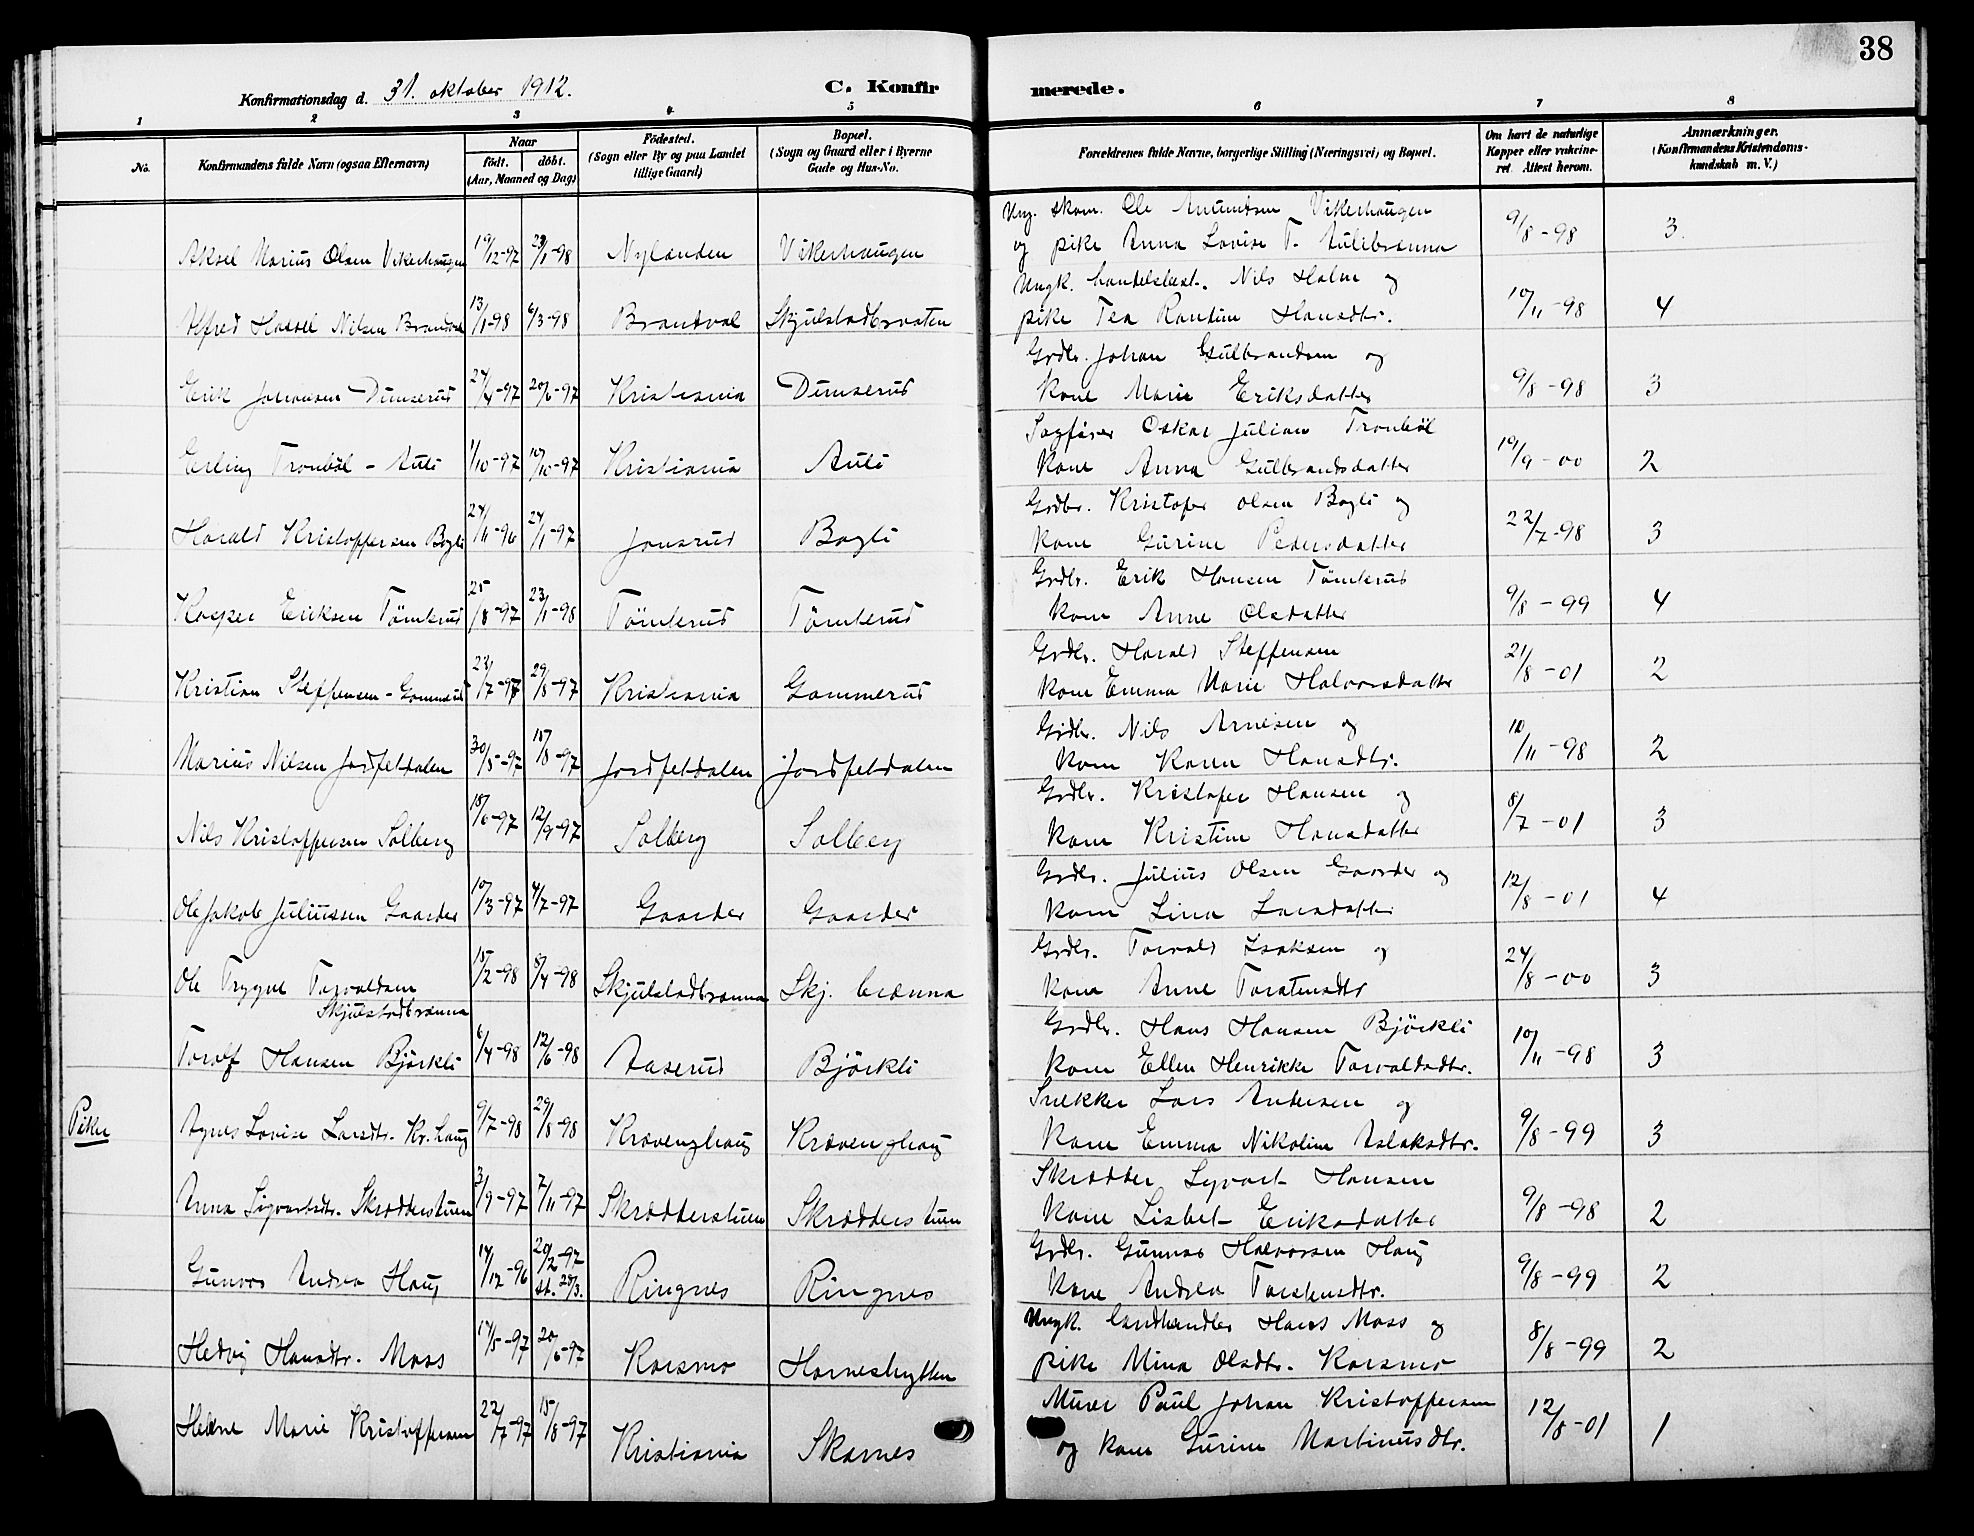 38
Konfirmationsdag d. 31. oktober 1912. C. Konfirmerede.
1 2 3 4 5 6 7 8
No. Konfirmandens fulde Navn (ogsaa Efternavn) Naar født. døbt. (Aar, Maaned og Dag) Fødested. (Sogn eller By og paa Landet tillige Gaard) Bopæl. (Sogn og Gaard eller i Byerne Gade og Hus-No. Forældrenes fulde Navne, borgerlige Stilling (Næringsvei) og Bopæl. Om havt de naturlige Kopper eller vaccineret. Attest herom. Anmærkninger. (Konfirmandens Kristendomskundskab m. V.)
Ung. skom. Ole Amundsen Vikerhaugen
Aksel Marius Olsen Vikerhaugen 19/12-97 23/1-98 Nylanden Vikerhaugen og pike Anna Lovise T. Aulibrænna 9/8-98 3
Ungk. handelsbest. Nils Holm og
Alfred Hassel Nilsen Brandval 13/1-98 6/3-98 Brandval Skjulstadbraaten pike Tea Rantine Hansdtr. 10/11-98 4
Grdbr. Johan Gulbrandsen og
Erik Johansen Dimserud 24/4-97 20/6-97 Kristiania Dimserud kone Marie Eriksdatter 9/8-98 3
Sagfører Oskar Julian Tronbøl
Erling Tronbøl - Auli 1/10-97 10/10-97 Kristiania Auli kone Anna Gulbrandsdatter 19/9-00 2
Grdbr. Kristofer Olsen Bogli og
Harald Kristoffersen Bogli 24/11-96 24/1-97 Jonsrud Bogli kone Gurine Pedersdatter 22/7-98 3
Grdbr. Erik Hansen Tömterud
Kasper Eriksen Tömterud 25/8-97 23/1-98 Tömterud Tömterud kone Anne Olsdatter 9/8-99 4
Grdbr. Harald Steffensen
Kristian Steffensen - Gommerud 23/7-97 29/8-97 Kristiania Gommerud kone Emma Marie Halvorsdatter 21/8-01 2
Grdbr. Nils Arnesen og
Marius Nilsen Jordfeldalen 30/5-97 15/8-97 Jordfeldalen Jordfeldalen kone Karen Hansdtr. 10/11-98 2
Grdbr. Kristofer Hansen og
Nils Kristoffersen Solberg 18/6-97 12/9-97 Solberg Solberg kone Kristine Hansdatter 8/7-01 3
Grdbr. Julius Olsen Gaarder og
Ole Jakob Juliussen Gaarder 10/3-97 4/7-97 Gaarder Gaarder kone Lina Larsdatter 12/8-01 4
Grdbr. Torvald Isaksen og
Ole Trygve Torvaldsen Skjulstadbrænna 15/2-98 8/4-98 Skjulstadbrænna Skj. brænna kone Anne Torstensdtr 24/8-00 3
Grdbr. Hans Hansen Björkli
Torolf Hansen Björkli 6/4-98 12/6-98 Aaserud Björkli kone Ellen Henrikke Torvaldsdtr. 10/11-98 3
Piker Snekker Lars Andersen og
Agnes Lovise Larsdtr. Kr. haug 9/7-98 29/8-98 Kravenghaug Kravenghaug kone Emma Nikoline Aslaksdtr. 9/8-99 3
Skrædder Sigvart Hansen
Anna Sigvartsdtr. Skrædderstuen 3/9-97 7/11-97 Skrædderstuen Skrædderstuen kone Lisbet Eriksdatter 9/8-98 2
Grdbr. Gunnar Halvorsen Haug
Gunvor Andrea Haug 14/12-96 20/2-97 st. 28/3. Ringnes Ringnes kone Andrea Torstensdtr. 9/8-99 2
Ungk. landhandler Hans Moss og
Hedvig Hansdtr. Moss 17/5-97 20/6-97 Korsmo Horneshytten pike Mina Olsdtr. Korsmo 8/8-99 2
Murer Paul Johan Kristoffersen
Helene Marie Kristoffersen 22/7-97 15/8-97 Kristiania Skarnes og kone Gurine Martinusdtr. 12/8-01 1